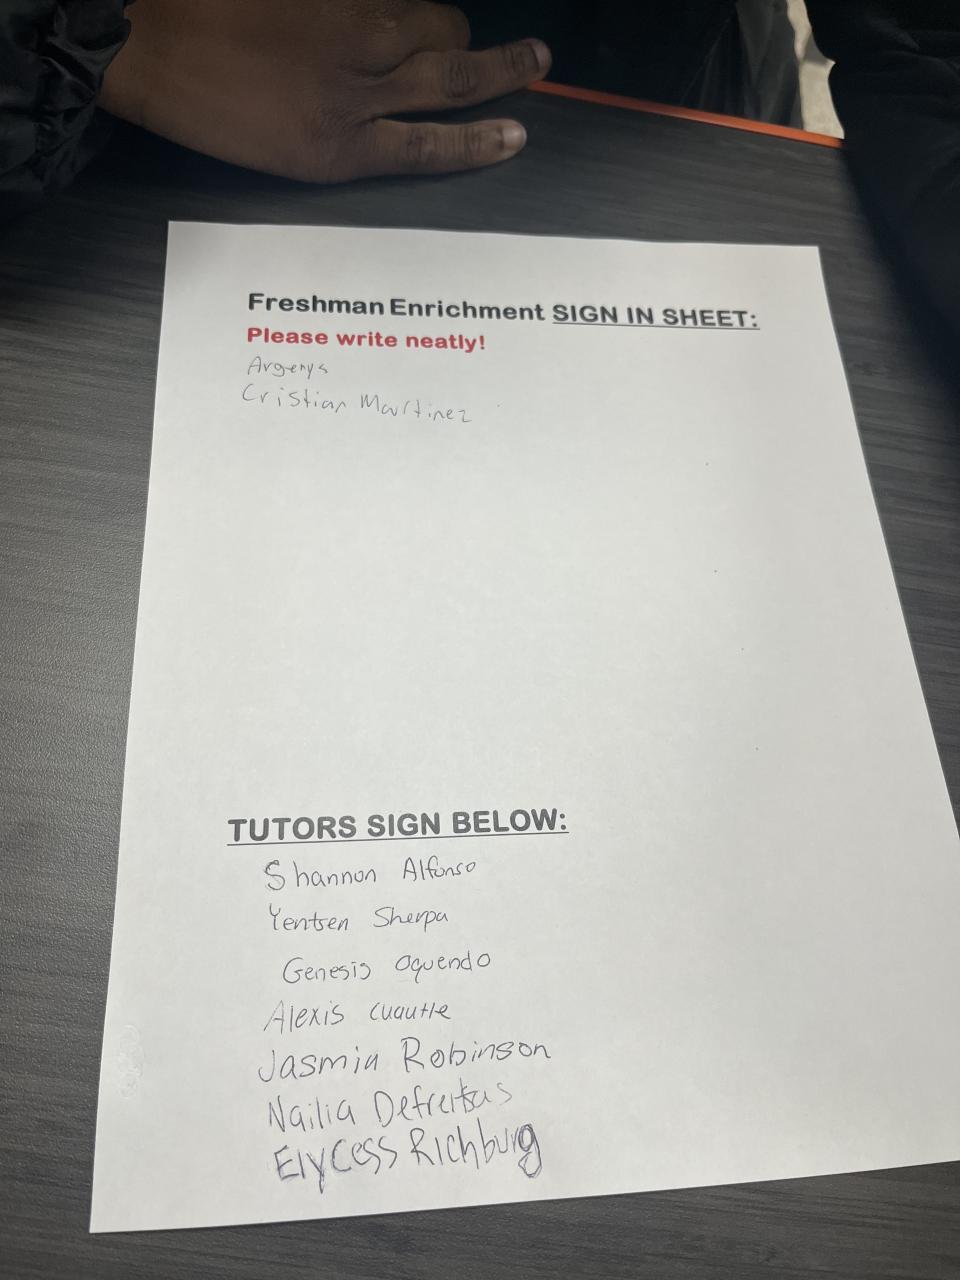 Freshman Enrichment SIGN IN SHEET:
Please write neatly!
Argenys
Cristian Martinez
TUTORS SIGN BELOW:
Shannon Alfonso
Yentsen Sherpa
Genesis Oquendo
Alexis Cuautle
Jasmin Robinson
Nailia Defreitas
Elycess Richburg